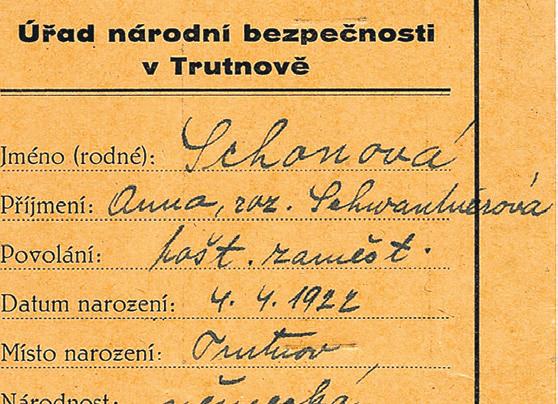 Úřad národní bezpečnosti
v Trutnově
Jméno (rodné): Schonová
Příjmení: Anna, roz. Schwantnerová
Povolání: pošt. zaměst.
Datum narození: 4. 4. 1922
Místo narození: Trutnov
Národnost: německá